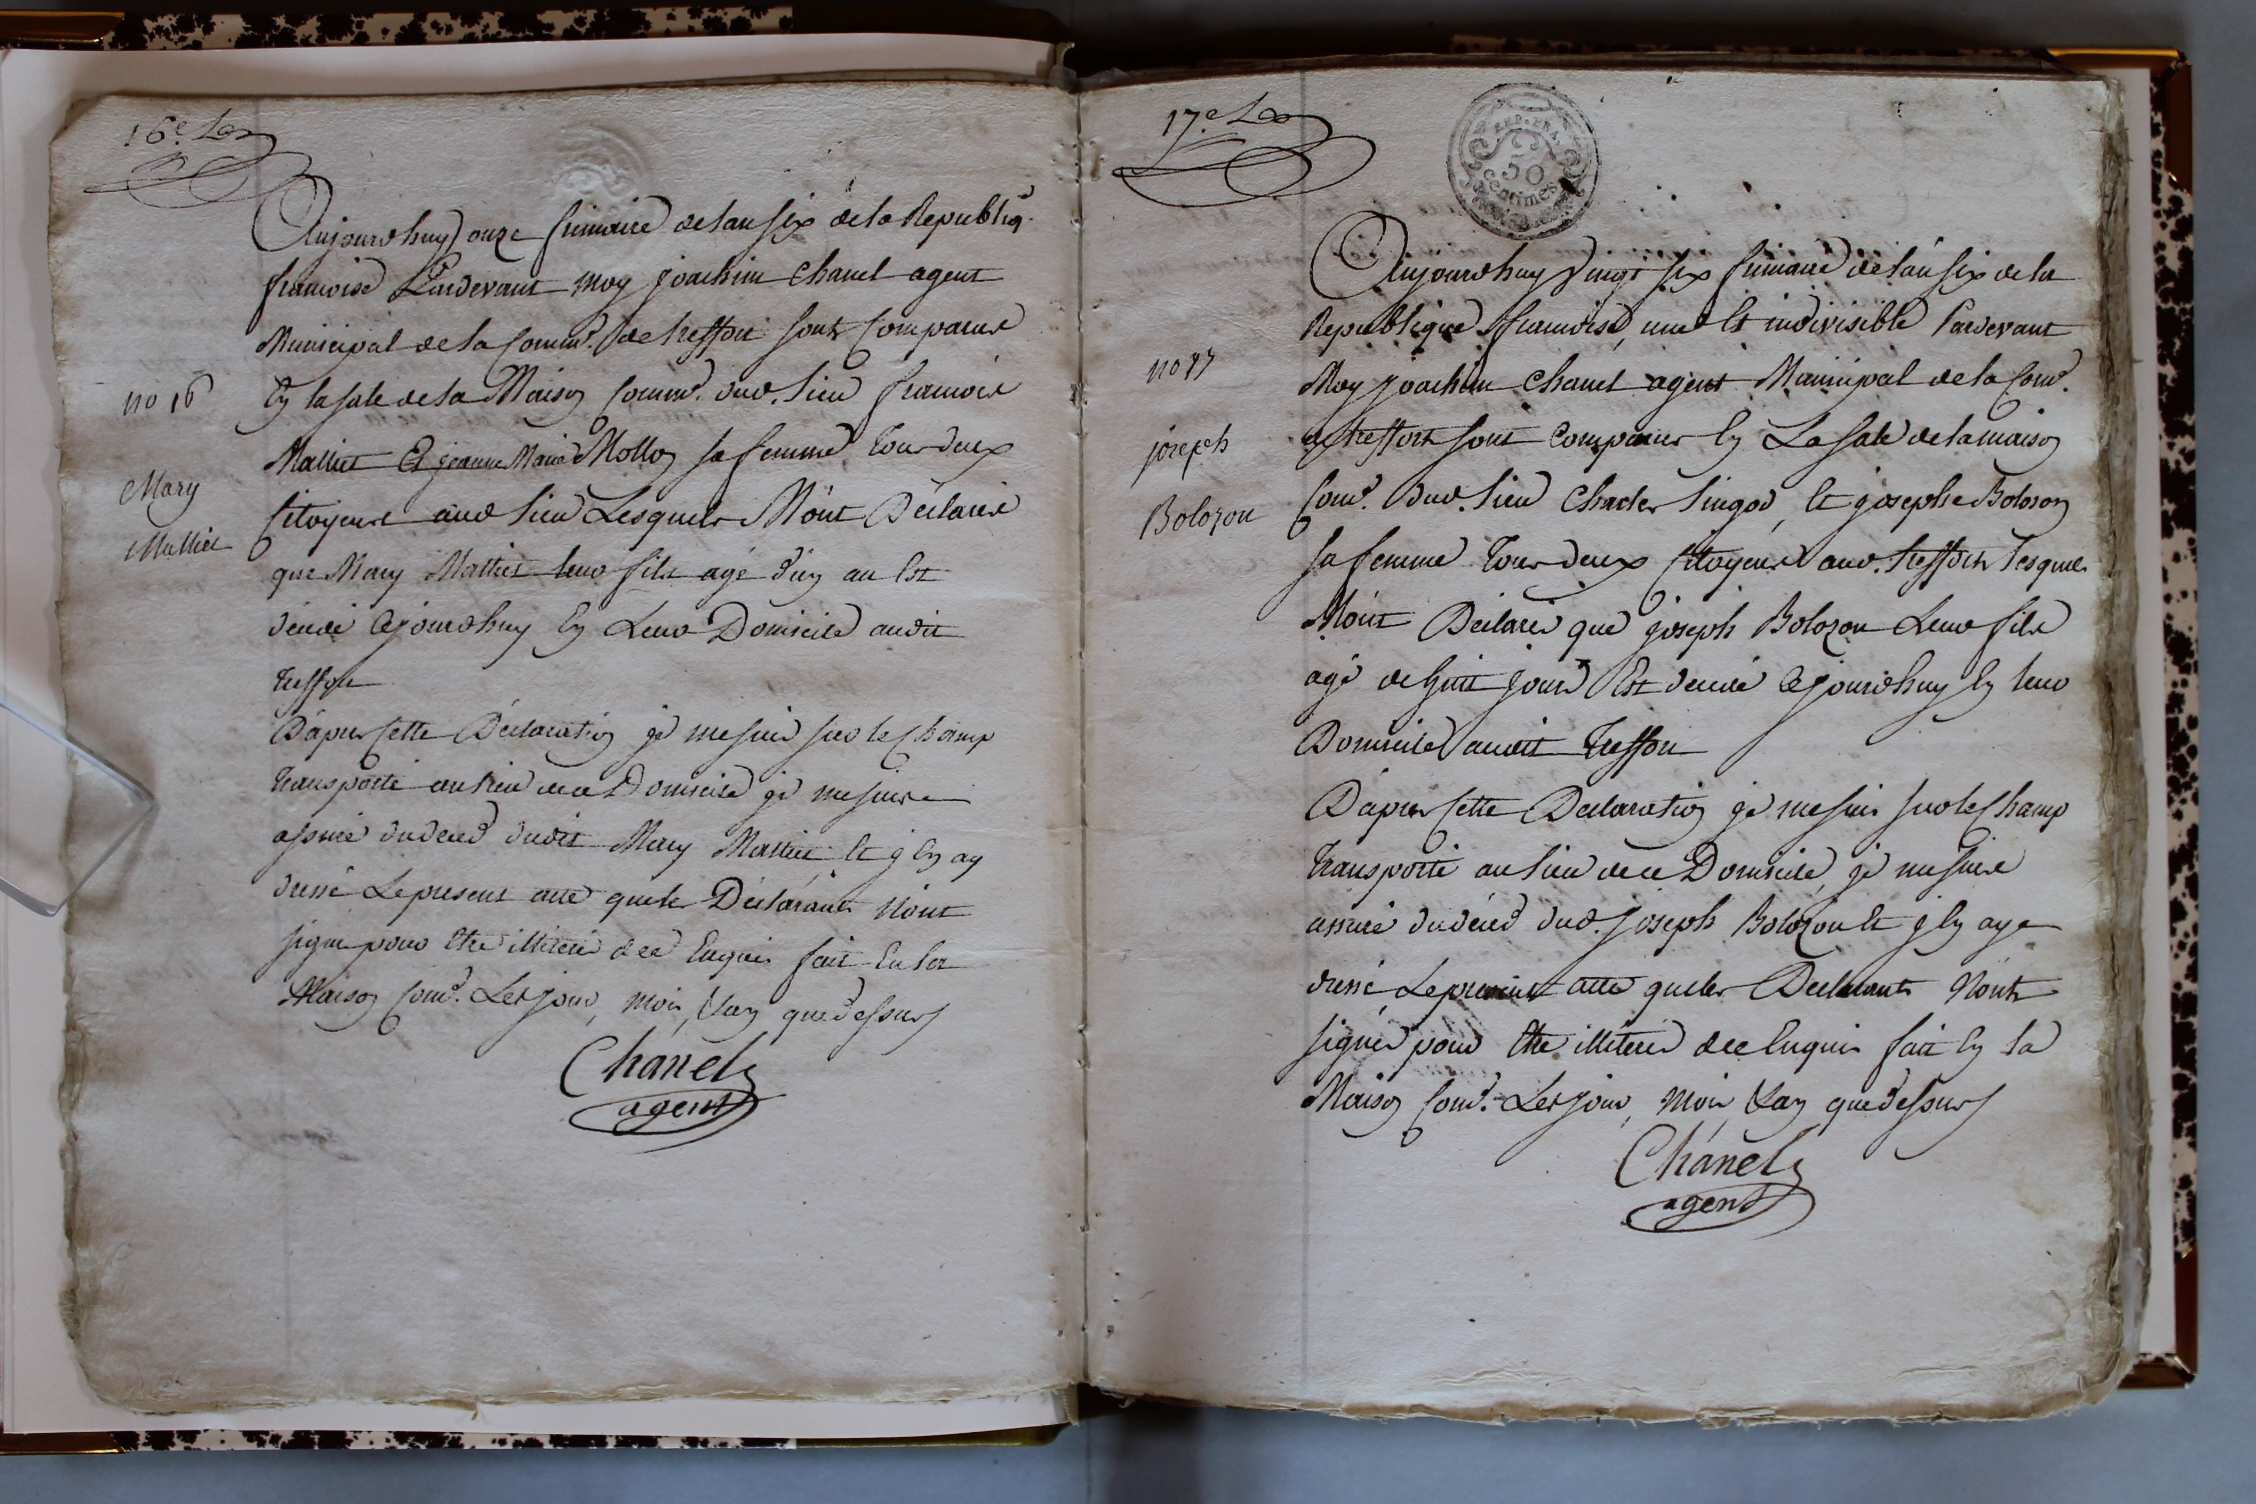 16e
Aujourdhuy onze frimaire de lan six de la Republiq.
francoise Pardevant moy joachim Chanel agent
Municipal de la Comm.e de treffort sont Comparus
no 16
Ey la sale de la Maison Comm.e dud. lieu francois
Mathiet Et jeanne Marie Mollon sa femme tous deux
Mary
Citoyens aud lieu Lesquels M'ont Déclaré
Mathiet
que Mary Mathiet leur fils agé d'un an Est
décédé cejourdhuy Ey Leur Domicile audit
treffort
D'apres Cette Déclaration je me suis sur le Champ
transporté au lieu de ce Domicile je me suis
assuré du déces dudit Mary Mathiet et j'ey ay
dressé Le present acte que les Déclarants N'ont
signé pour etre illiteré de ce Enquis fait En la
Maison Com.e Les jour, mois, & an que dessus
Chanel
agent
17e
REP. FRA.
50
centimes
Aujourdhuy Vingt six frimaire de l'an six de la
Republique francoise, une Et indivisible Pardevant
no 17
Moy joachim Chanel agent Municipal de la Com.e
joseph
de treffort sont Comparus Ey La sale de la maison
Bolozon
Com.e Dud. lieu Charles Lingod, Et josephe Bolozon
sa femme tous deux Citoyens aud. treffort lesquels
M'ont Déclaré que joseph Bolozon Leur fils
agé de huit jours Est décédé cejourdhuy Ey leur
Domicile audit treffort
D'apres Cette Declaration je me suis sur le Champ
transporté au lieu de ce Domicile, je me suis
assuré du déces dud. joseph Bolozon Et j'ey ay
dressé Le present acte que les Declarants N'ont
signés pour etre illiterés de ce Enquis fait Ey la
Maison Com.e Les jour, mois, & an que dessus
Chanel
agent